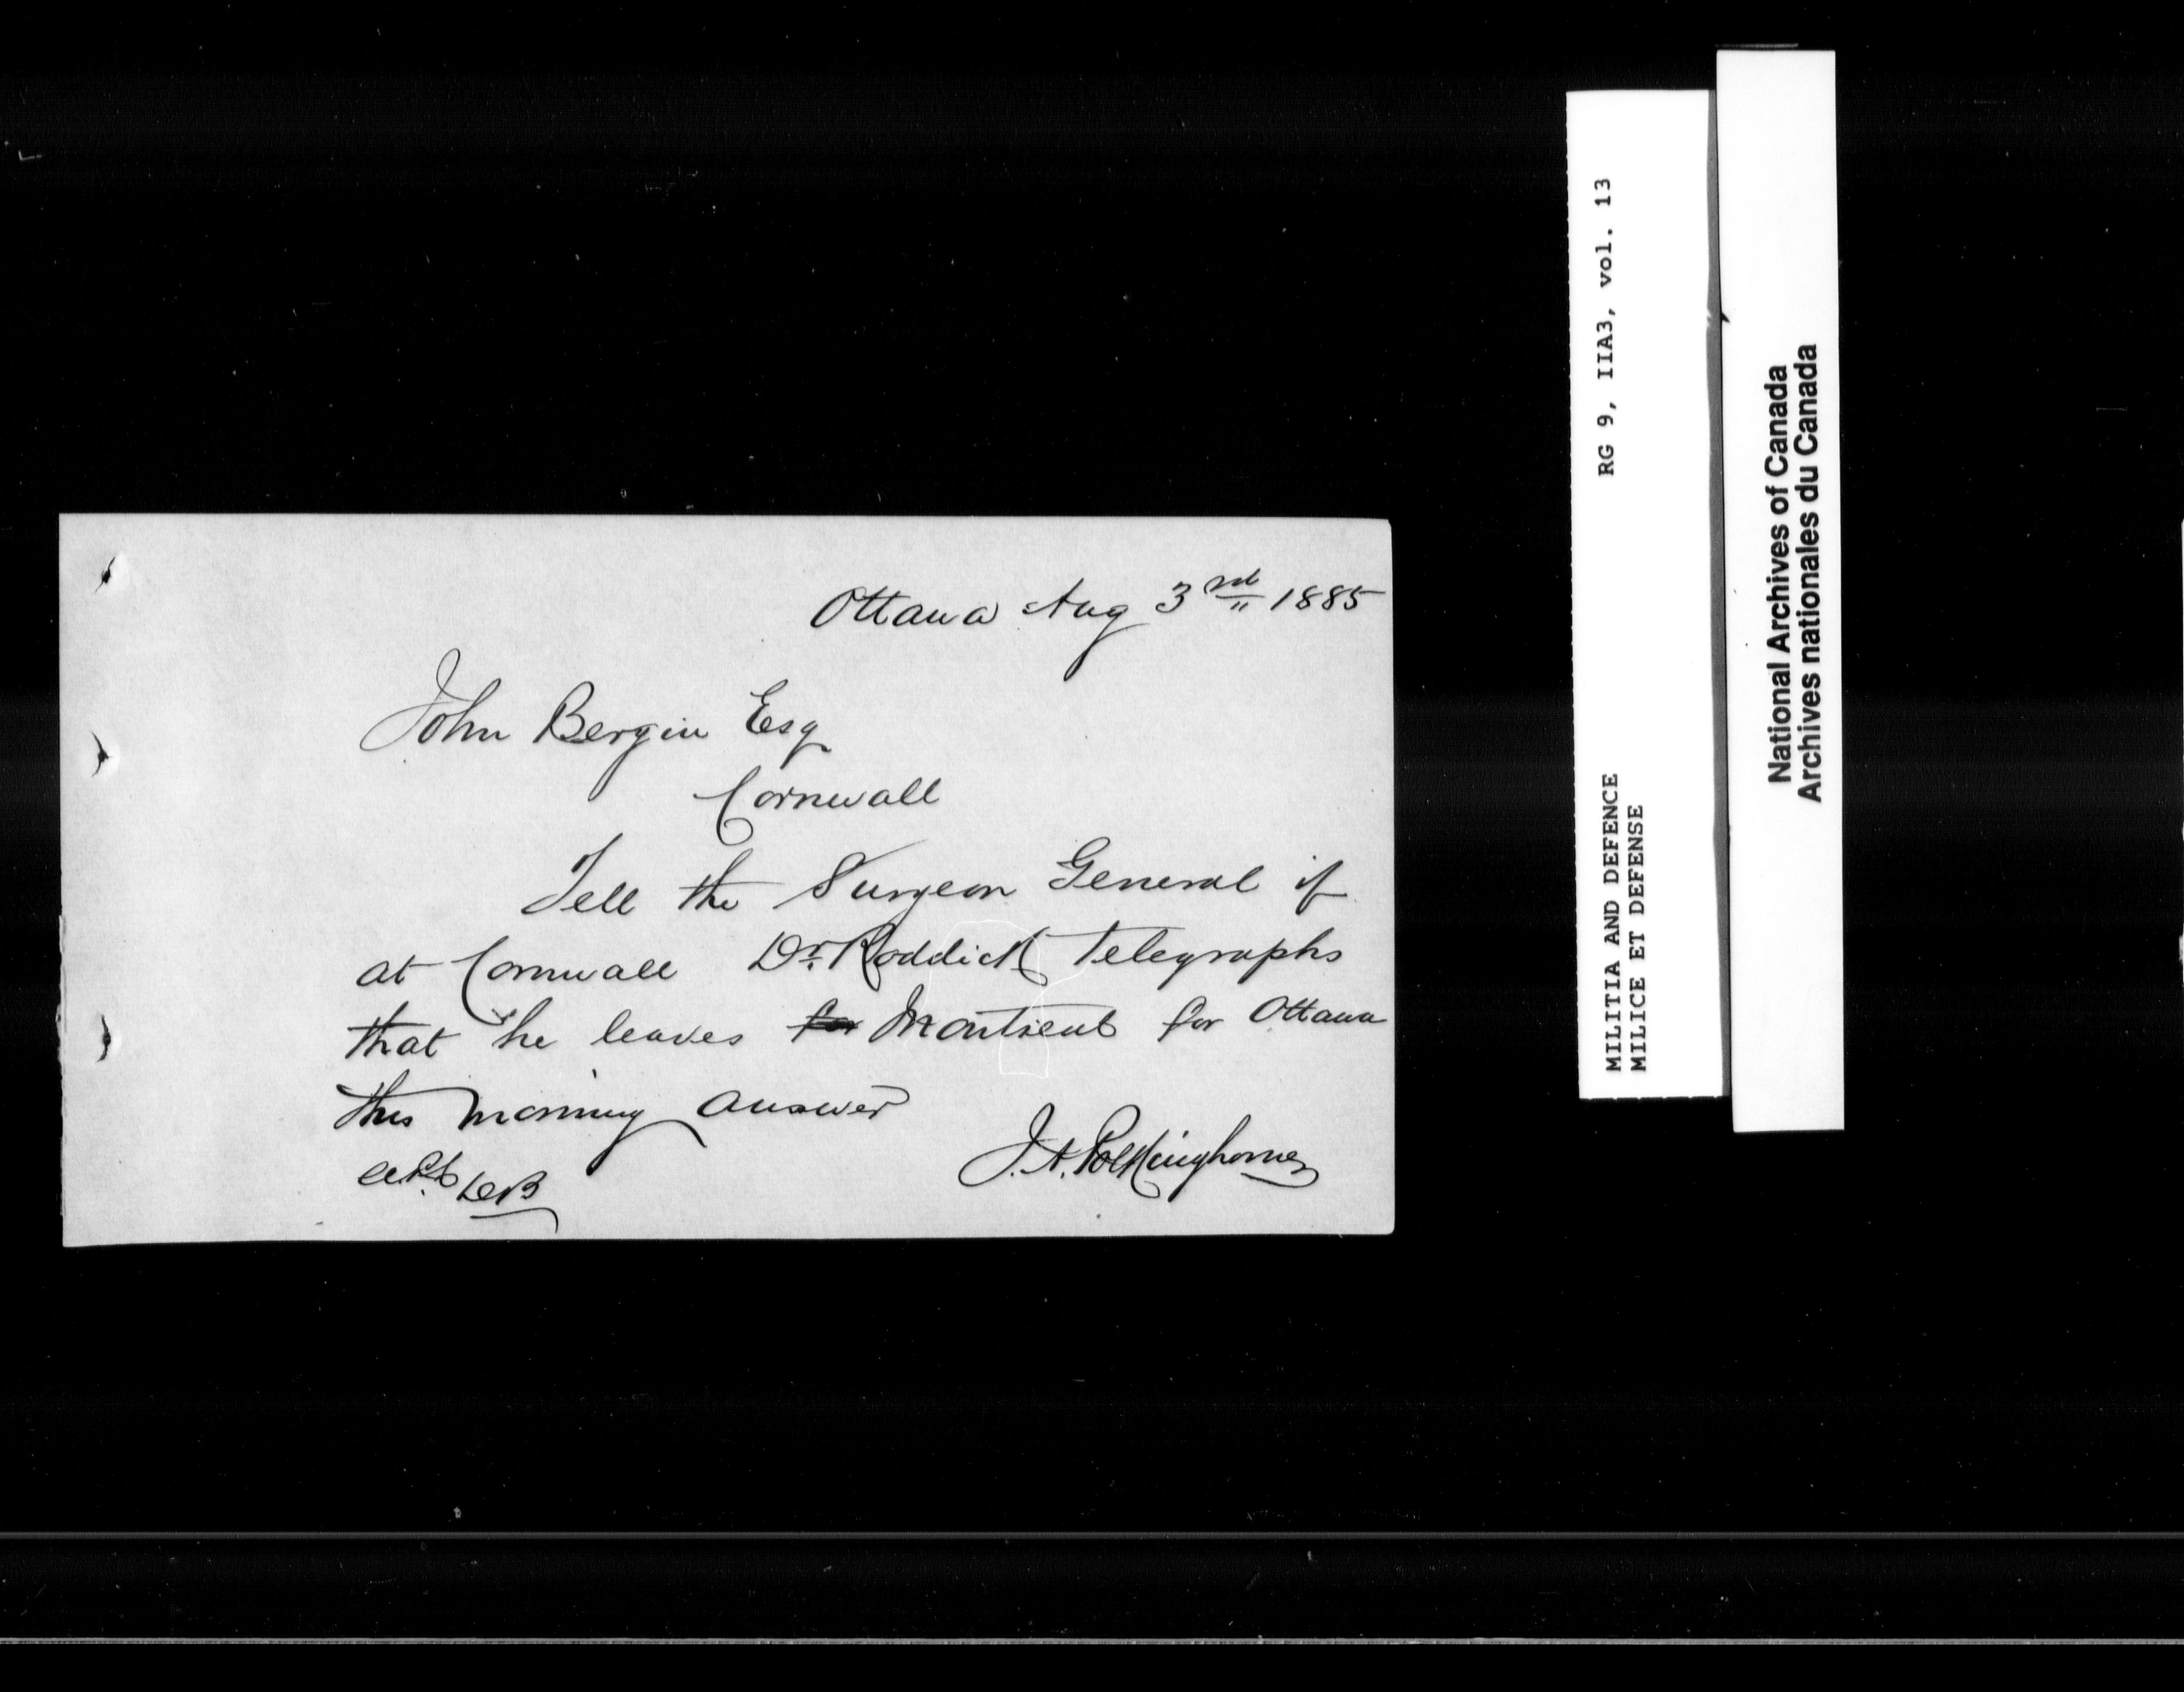 Ottawa Aug 3rd 1885
John Bergin Esq
Cornwall
Tell the Surgeon General if
at Cornwall Dr. Roddick telegraphs
that he leaves for Montreal for Ottawa
this morning answer
J. A. Polkinghorne
DB
RG 9, IIA3, vol. 13
MILITIA AND DEFENCE
MILICE ET DEFENSE
National Archives of Canada
Archives nationales du Canada